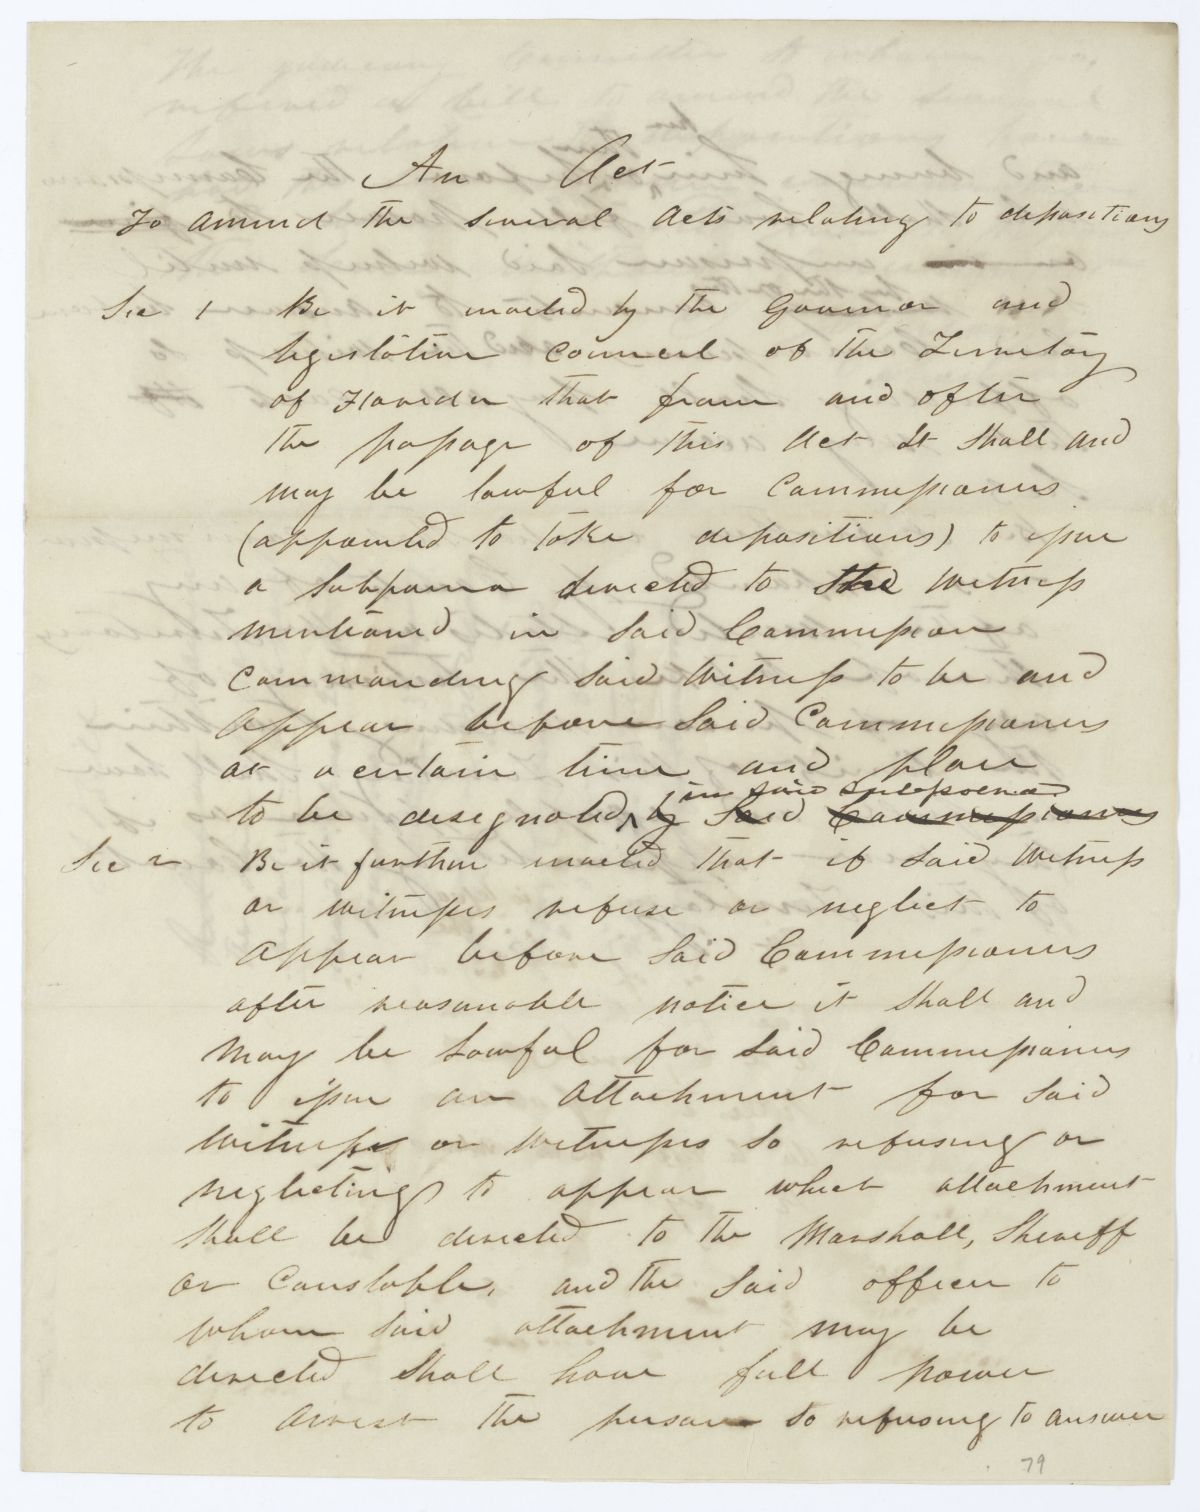 An Act
To amend the several Acts relating to depositions
Sec 1 Be it enacted by the Governor and
legislative Council of the Territory
of Florida that from and after
the passage of this Act It Shall and
may be lawful for Commissioners
(appointed to take depositions) to issue
a Subpoena directed to the Witness
mentioned in Said Commission
Commanding Said Witness to be and
Appear before Said Commissioners
at a certain time and place
in said subpoena
to be designated by Said Commissioners
Sec 2 Be it further enacted that if Said Witness
or witnesses refuse or neglect to
Appear before Said Commissioners
after reasonable notice it Shall and
May be Lawful for Said Commissioners
to issue an Attachment for Said
Witness or Witnesses So refusing or
Neglecting to appear which attachment
Shall be directed to the Marshall, Sheriff
or Constable, and the Said officer to
Whom Said attachment may be
directed Shall have full power
to Arrest the person So refusing to answer
79